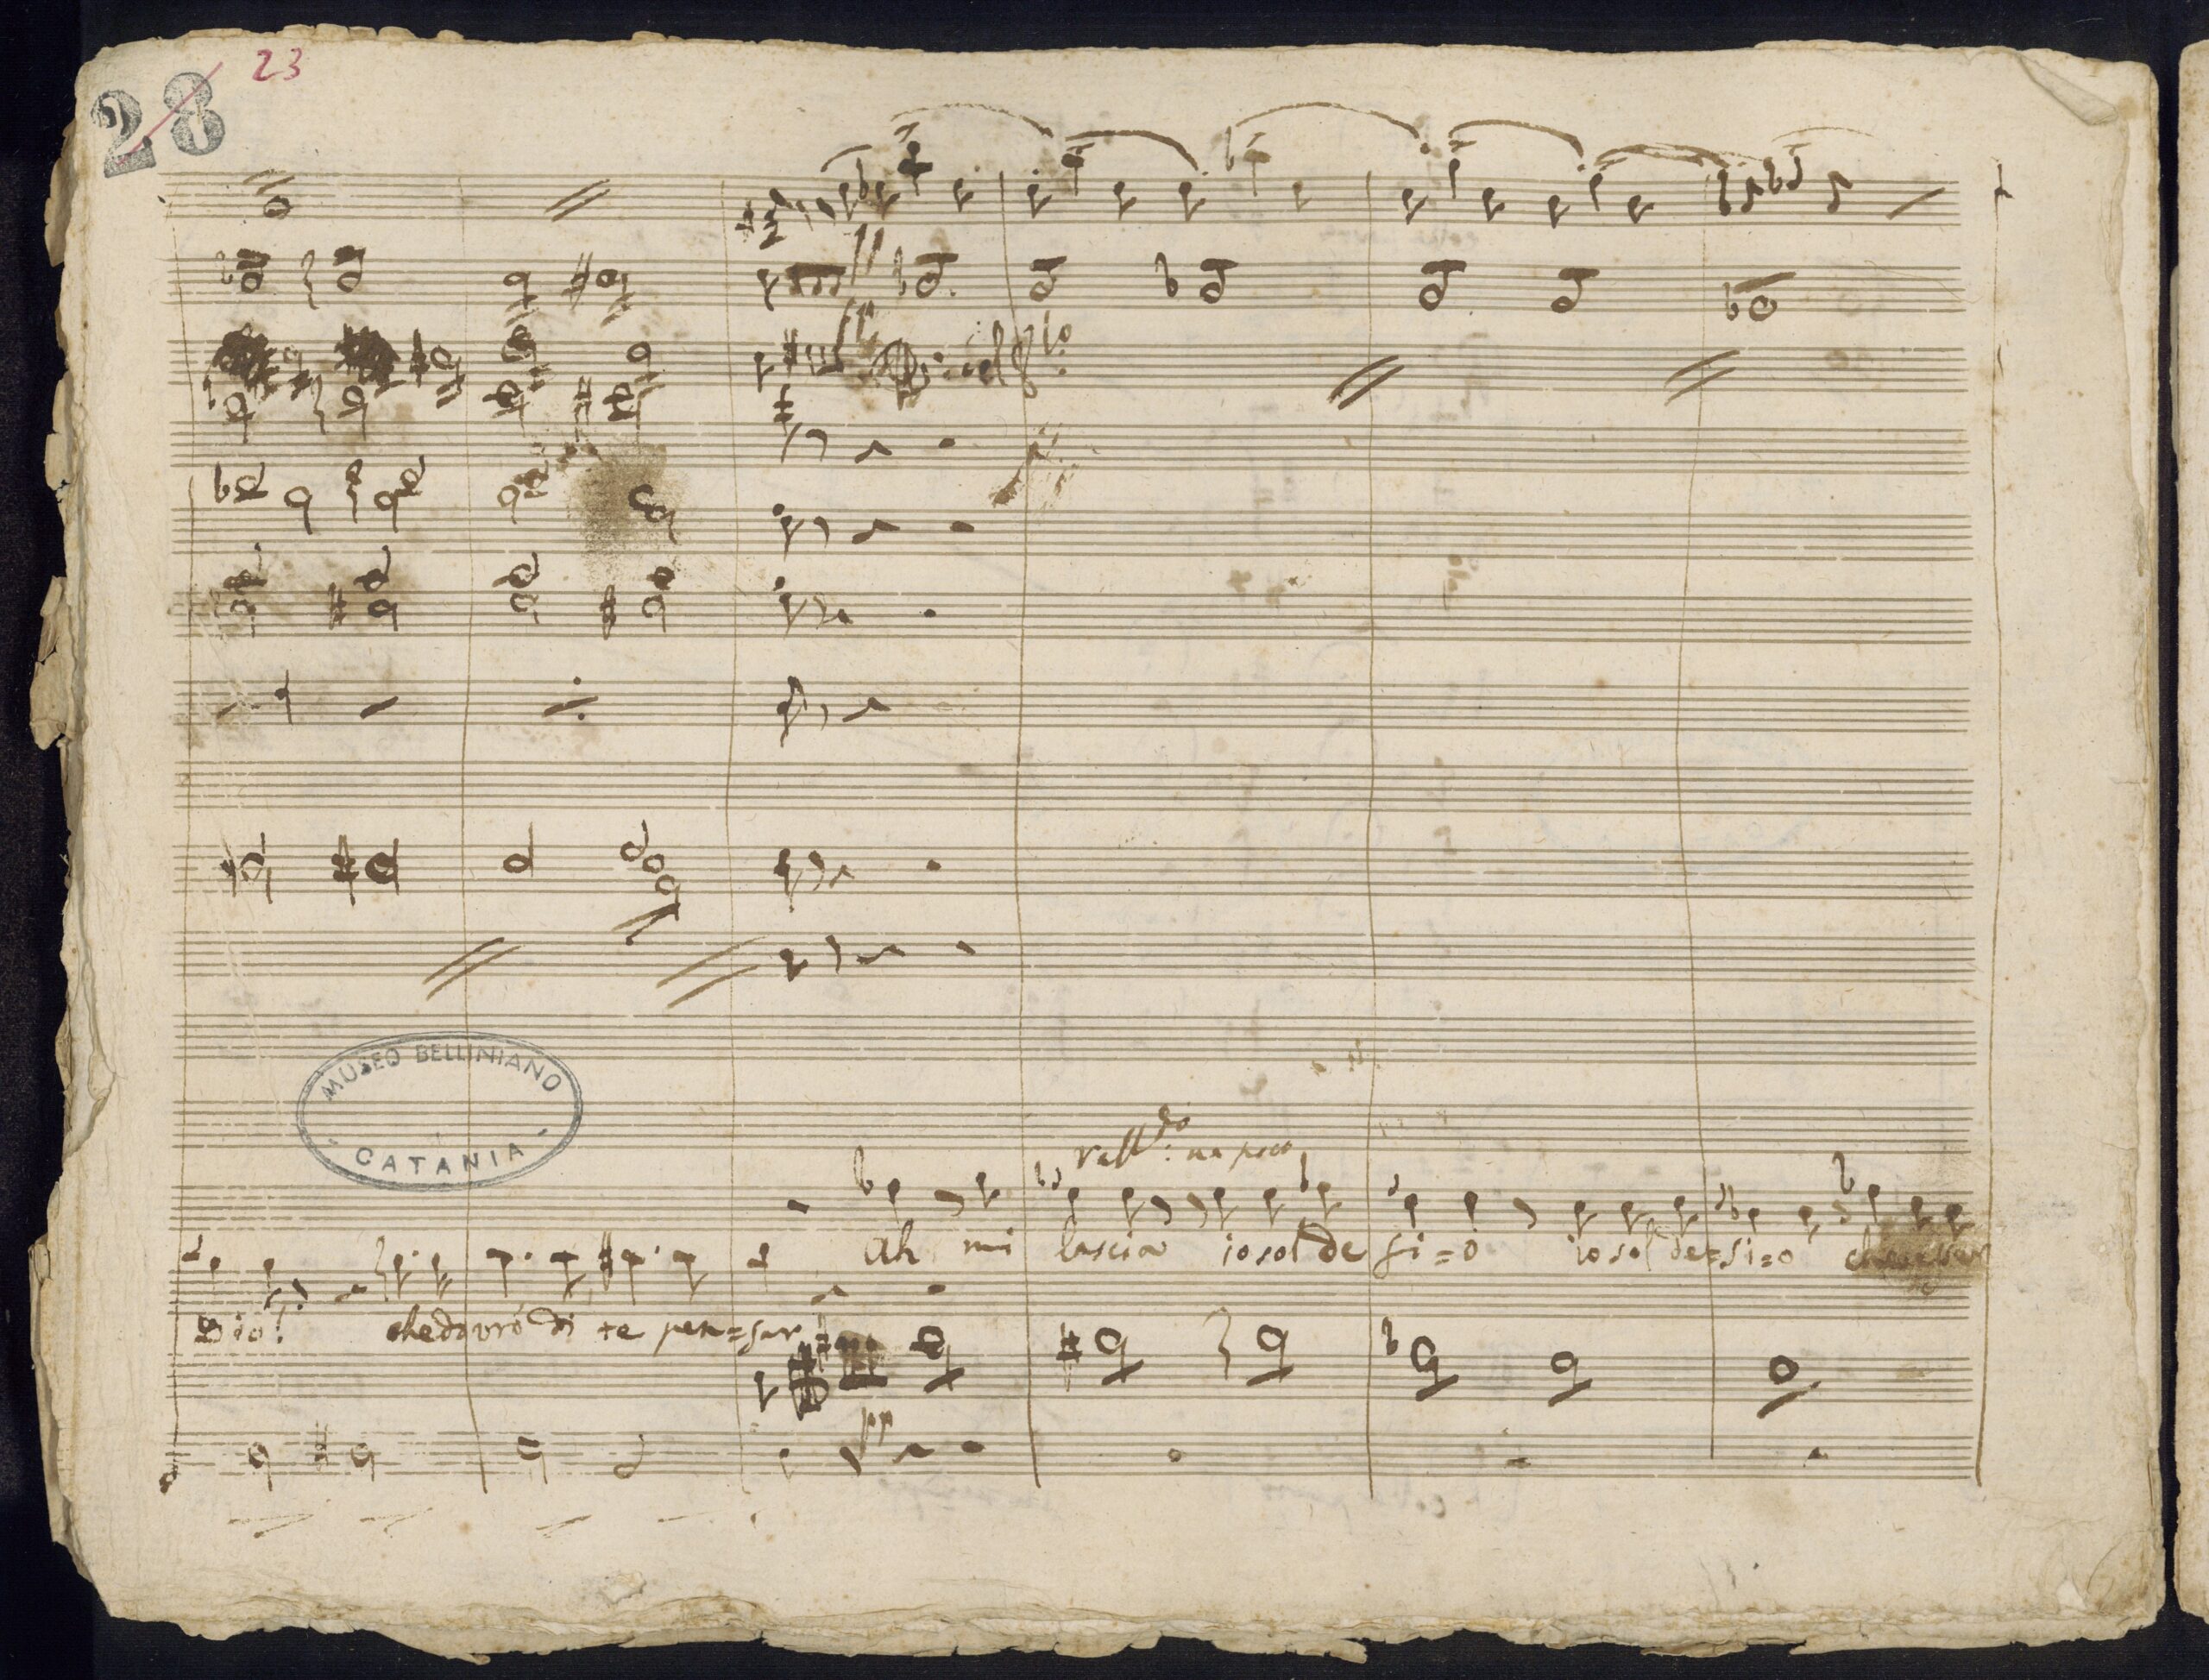 23
28
pp
pp
Vi: col Pmo:
MUSEO BELLINIANO
CATANIA
rall.do un poco
Ah mi lascia io sol de si=o io sol de=si=o
Dio! che dovrò di te pen=sar
pp